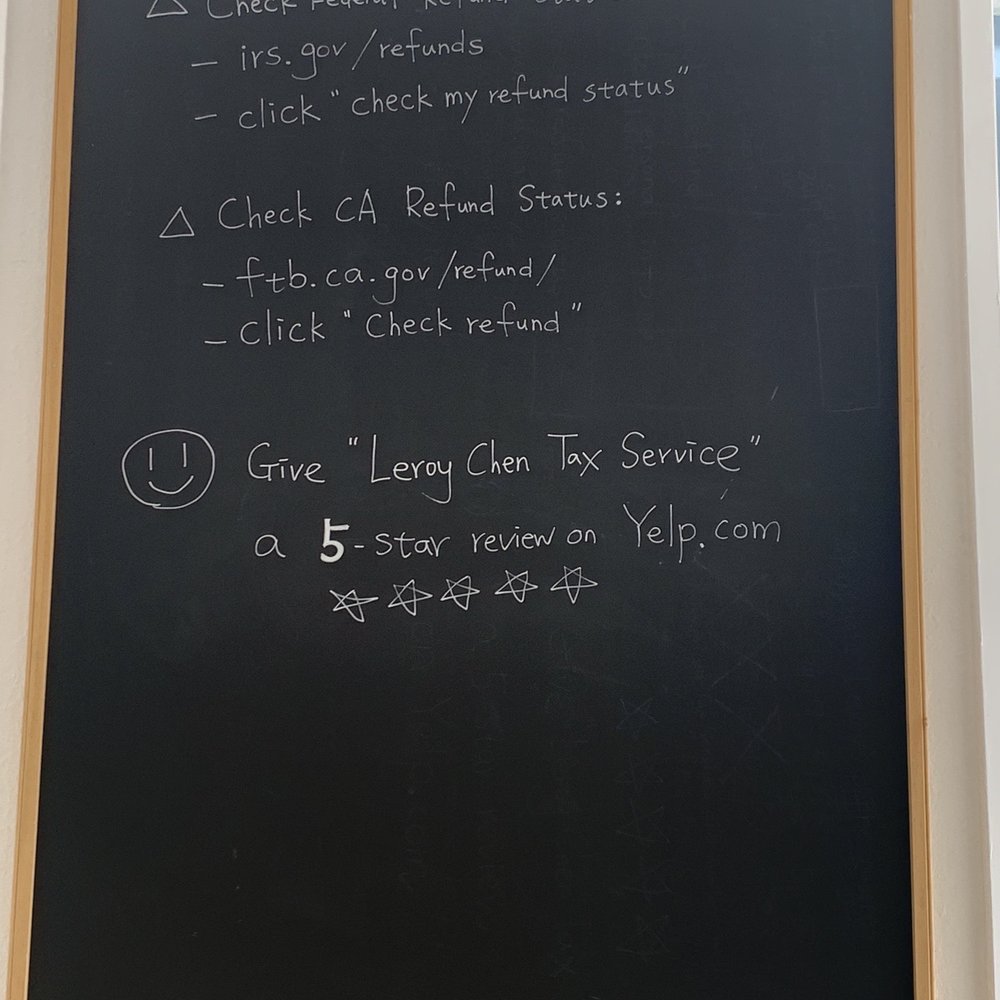 △ Check Federal Refund
- irs.gov/refunds
- click "check my refund status"
△ Check CA Refund Status:
- ftb.ca.gov/refund/
- click "Check refund"
Give "Leroy Chen Tax Service"
a 5-star review on Yelp.com